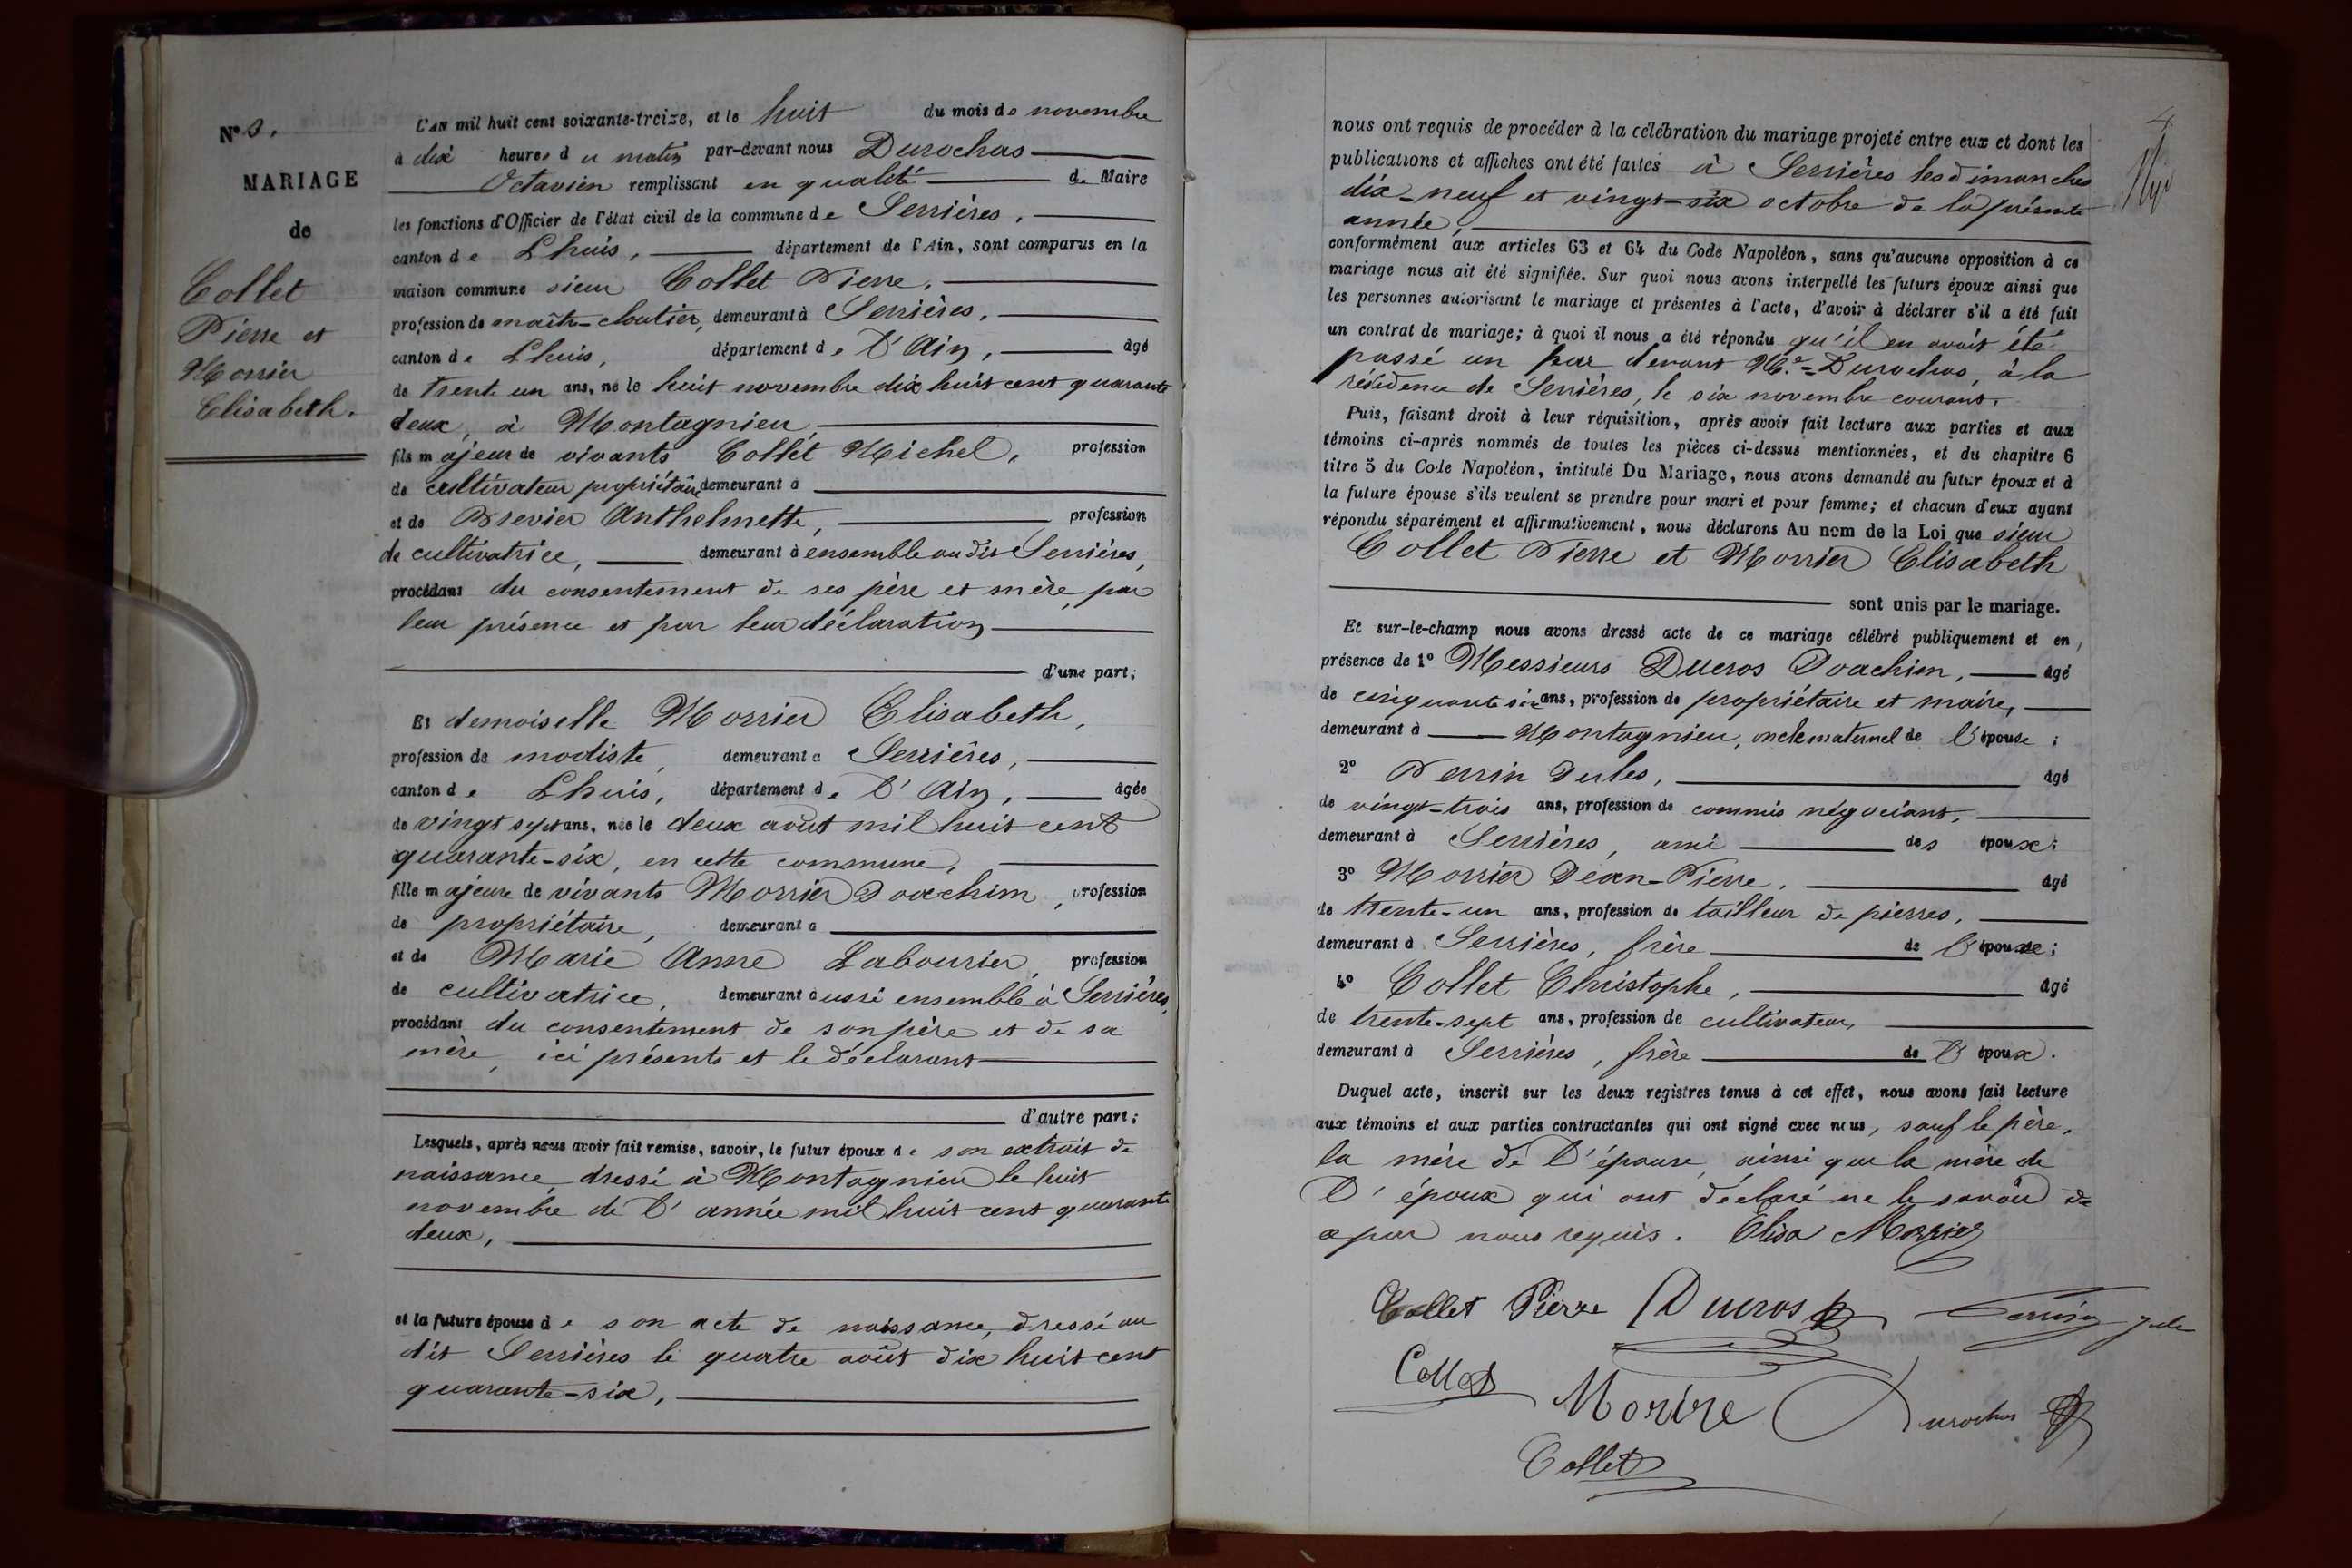 N° 3.
MARIAGE
de
Collet
Pierre et
Morrier
Elisabeth.
L'AN mil huit cent soixante-treize, et le huit du mois de novembre
à dix heures du matin par-devant nous Durochas
Octavien remplissant en qualité de Maire
les fonctions d'Officier de l'état civil de la commune de Serrières,
canton de Lhuis, département de l'Ain, sont comparus en la
maison commune sieur Collet Pierre,
profession de maître-cloutier, demeurant à Serrières,
canton de Lhuis, département de l'Ain, âgé
de trente un ans, né le huit novembre dix huit cent quarante
deux, à Montagnieu,
fils majeur de vivants Collet Michel, profession
de cultivateur propriétaire demeurant à
et de Brevier Anthelmette, profession
de cultivatrice, demeurant à ensemble au dit Serrières,
procédant du consentement de ses père et mère, par
leur présence et par leur déclaration
d'une part;
Et demoiselle Morrier Elisabeth,
profession de modiste, demeurant à Serrières,
canton de Lhuis, département de l'Ain, âgée
de vingt sept ans, née le deux août mil huit cent
quarante-six, en cette commune,
fille majeure de vivants Morrier Joachim, profession
de propriétaire, demeurant à
et de Marie Anne Labourier, profession
de cultivatrice, demeurant aussi ensemble à Serrières,
procédant du consentement de son père et de sa
mère, ici présents et le déclarant
d'autre part;
Lesquels, après nous avoir fait remise, savoir, le futur époux de son extrait de
naissance, dressé à Montagnieu le huit
novembre de l'année mil huit cent quarante
deux,
et la future épouse de son acte de naissance, dressé au
dit Serrières le quatre août dix huit cent
quarante-six,
4
nous ont requis de procéder à la célébration du mariage projeté entre eux et dont les
publications et affiches ont été faites à Serrières les dimanches
dix-neuf et vingt-six octobre de la présente
année,
conformément aux articles 63 et 64 du Code Napoléon, sans qu'aucune opposition à ce
mariage nous ait été signifiée. Sur quoi nous avons interpellé les futurs époux ainsi que
les personnes autorisant le mariage et présentes à l'acte, d'avoir à déclarer s'il a été fait
un contrat de mariage; à quoi il nous a été répondu qu'il en avait été
passé un par devant Me. Durochas, à la
résidence de Serrières, le six novembre courant.
Puis, faisant droit à leur réquisition, après avoir fait lecture aux parties et aux
témoins ci-après nommés de toutes les pièces ci-dessus mentionnées, et du chapitre 6
titre 5 du Code Napoléon, intitulé Du Mariage, nous avons demandé au futur époux et à
la future épouse s'ils veulent se prendre pour mari et pour femme; et chacun d'eux ayant
répondu séparément et affirmativement, nous déclarons Au nom de la Loi que sieur
Collet Pierre et Morrier Elisabeth
sont unis par le mariage.
Et sur-le-champ nous avons dressé acte de ce mariage célébré publiquement et en
présence de 1° Messieurs Ducros Joachim, âgé
de cinquante six ans, profession de propriétaire et maire,
demeurant à Montagnieu, oncle maternel de l'épouse;
2° Perrin Jules, âgé
de vingt-trois ans, profession de commis négociant,
demeurant à Serrières, ami des époux;
3° Morrier Jean-Pierre, âgé
de trente-un ans, profession de tailleur de pierres,
demeurant à Serrières, frère de l'épouse;
4° Collet Christophe, âgé
de trente-sept ans, profession de cultivateur,
demeurant à Serrières, frère de l'époux.
Duquel acte, inscrit sur les deux registres tenus à cet effet, nous avons fait lecture
aux témoins et aux parties contractantes qui ont signé avec nous, sauf le père,
la mère de l'épouse, ainsi que la mère de
l'époux qui ont déclaré ne le savoir de
ce par nous requis. Elisa Morrier
Collet Pierre Ducros Perrin Jules
Collet Morire Durochas
Collet